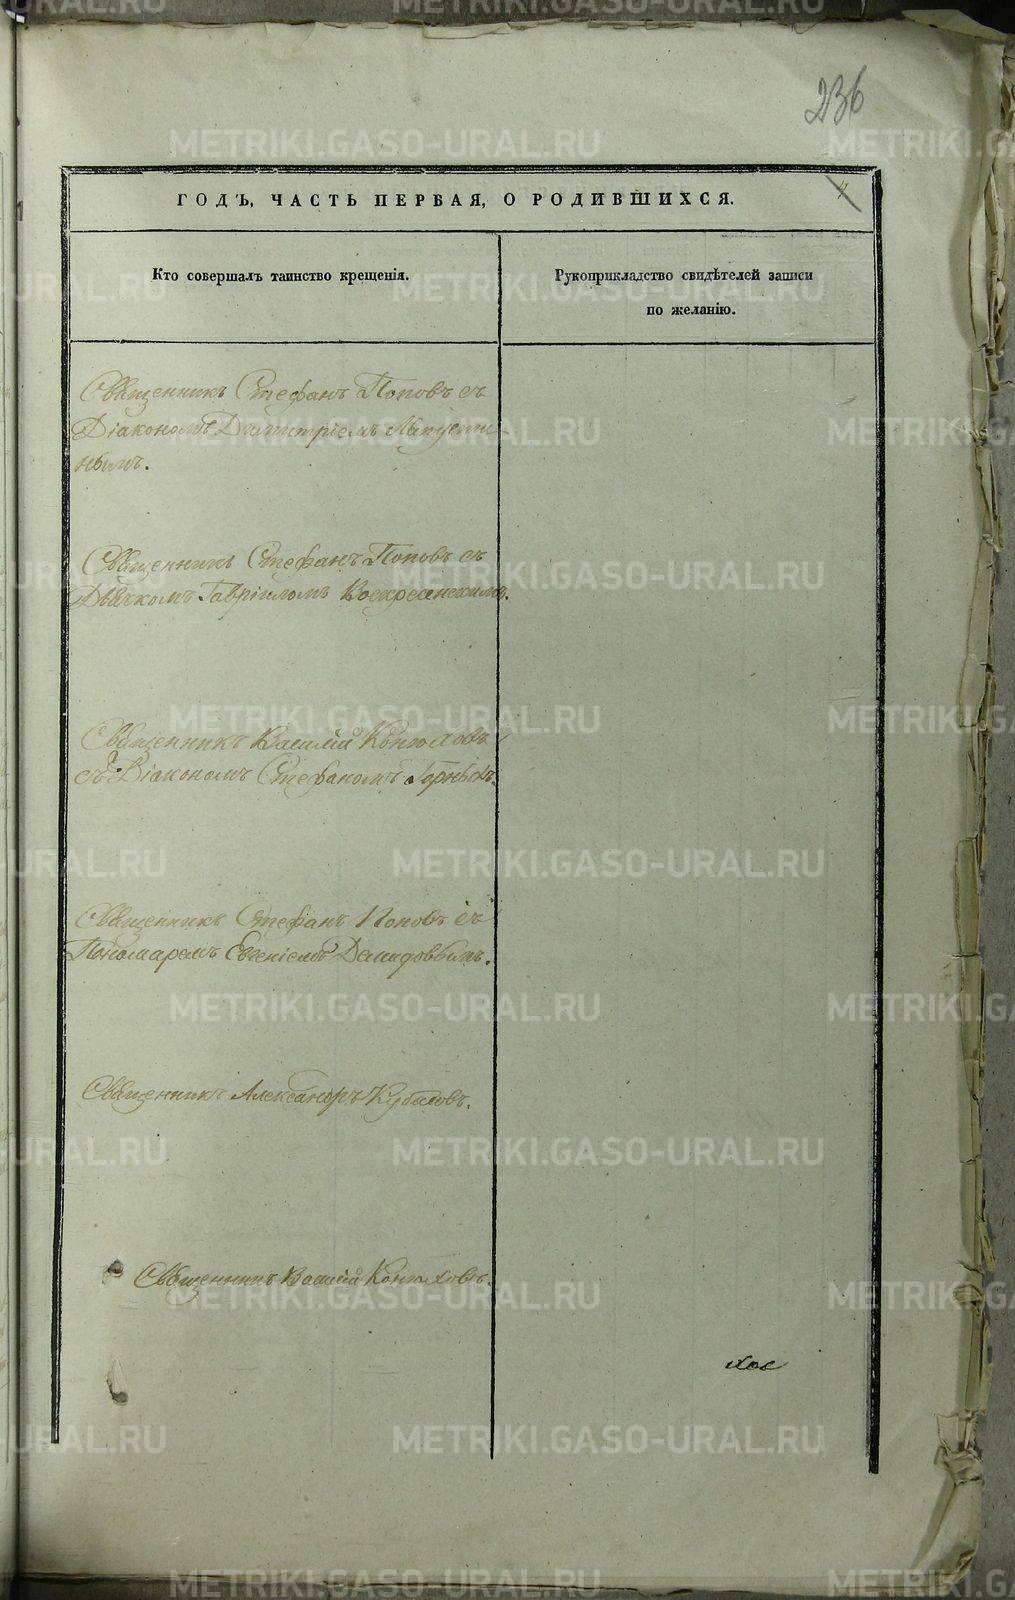 236
ГОДЪ, ЧАСТЬ ПЕРВАЯ, О РОДИВШИХСЯ.
Кто совершалъ таинство крещенія.
Рукоприкладство свидѣтелей записи
по желанію.
Священникъ Стефанъ Поповъ съ
Діакономъ Димитріемъ
нымъ.
Священникъ Стефанъ Поповъ съ
Дьячкомъ Гавріиломъ Воскресенскимъ.
Священникъ Василій Конюховъ
съ Діакономъ Стефаномъ Горныхъ.
Священникъ Стефанъ Поповъ съ
Пономаремъ Евгеніемъ Демидовымъ.
Священникъ Александръ Кубасовъ.
Священникъ Василій Конюховъ.
METRIKI.GASO-URAL.RU